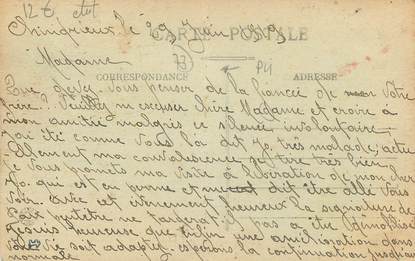 12 €
Chindrieux le 29 Juin 1919
CARTE POSTALE
73
Madame
P4
CORRESPONDANCE ADRESSE
Que devez vous penser de la fiancée de mon votre
frère? Veuillez m'excuser chère Madame et croire à
mon amitié malgré ce silence involontaire
J'ai été comme vous l'a dit Jo. très malade; actu
ellement ma convalescence se tire très bien,
je vous promets ma visite à libération de mon cher
Jo. qui est en perme et dit être allé vous
voir. Avec cet évènement heureux la signature de
Paix peut-être ne tardera il pas a être démobilisé
Je suis heureuse que enfin une amélioration dans
votre vie soit adaptée. espérons la continuation jusqu'à
normale